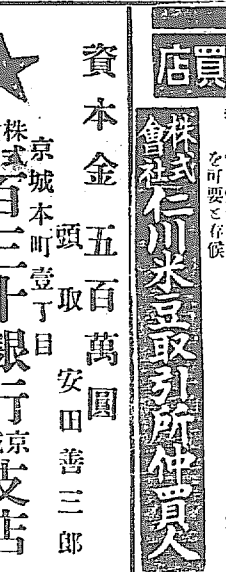 買店
を可要と存候
株式會社仁川米豆取引所仲買人
資本金五百萬圓
頭取 安田善三郎
京城本町壹丁目
株式百三十銀行京支店